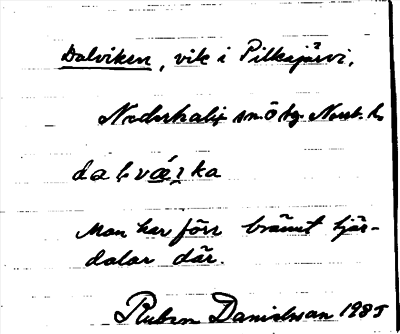 Dalviken, vik i Pitkäjärvi,
Nederkalix sn. Ö tg. Norrb. l.
dalvǽrka
Man har förr bränt tjär-
dalar där.
Ruben Danielsson 1935